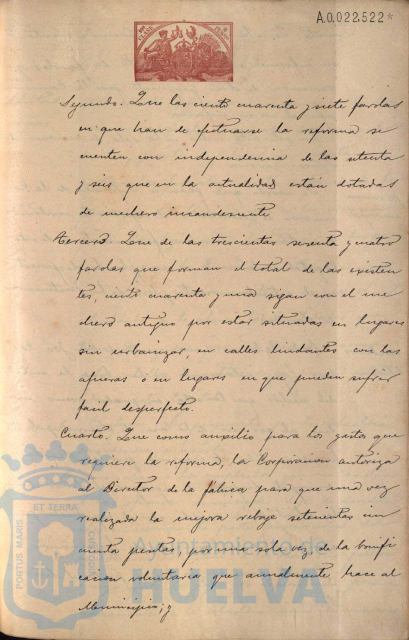 A.0.022.522*
Segundo. Que las ciento cuarenta y siete farolas
en que han de efectuarse la reforma se
cuenten con independencia de las setenta
y seis que en la actualidad están dotadas
de mechero incandescente
Tercero. Que de las trescientas sesenta y cuatro
farolas que forman el total de las existen
tes, ciento cuarenta y una sigan con el me
chero antiguo por estar situadas en lugares
sin urbanizar, en calles lindantes con las
afueras ó en lugares en que pueden sufrir
fácil desperfecto.
Cuarto. Que como auxilio para los gastos que
requiere la reforma, la Corporacion autoriza
al Director de la fábrica para que una vez
realizada la mejora rebaje setecientas cin
cuenta pesetas por una sola vez, de la bonifi
cacion voluntaria que anualmente hace al
Municipio; y
PORTUS MARIS
ET TERRA
CUSTODIA
Ayuntamiento de
HUELVA